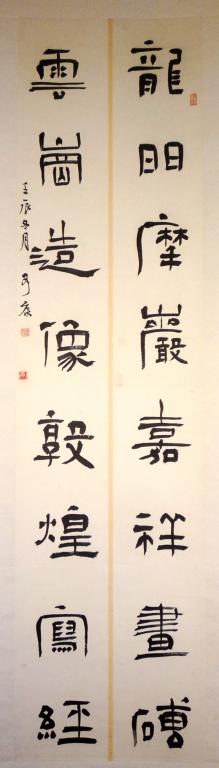 龍門摩巖嘉祥畫磚
雲崗造像敦煌寫經
壬辰冬月